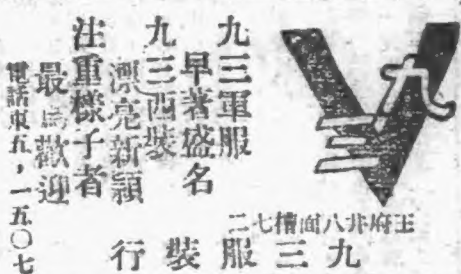 九三
九三軍服
早著盛名
九三西裝
漂亮新穎
注重樣子者
最為歡迎
電話東五，一五〇七
王府井八面槽七二
九三服裝行